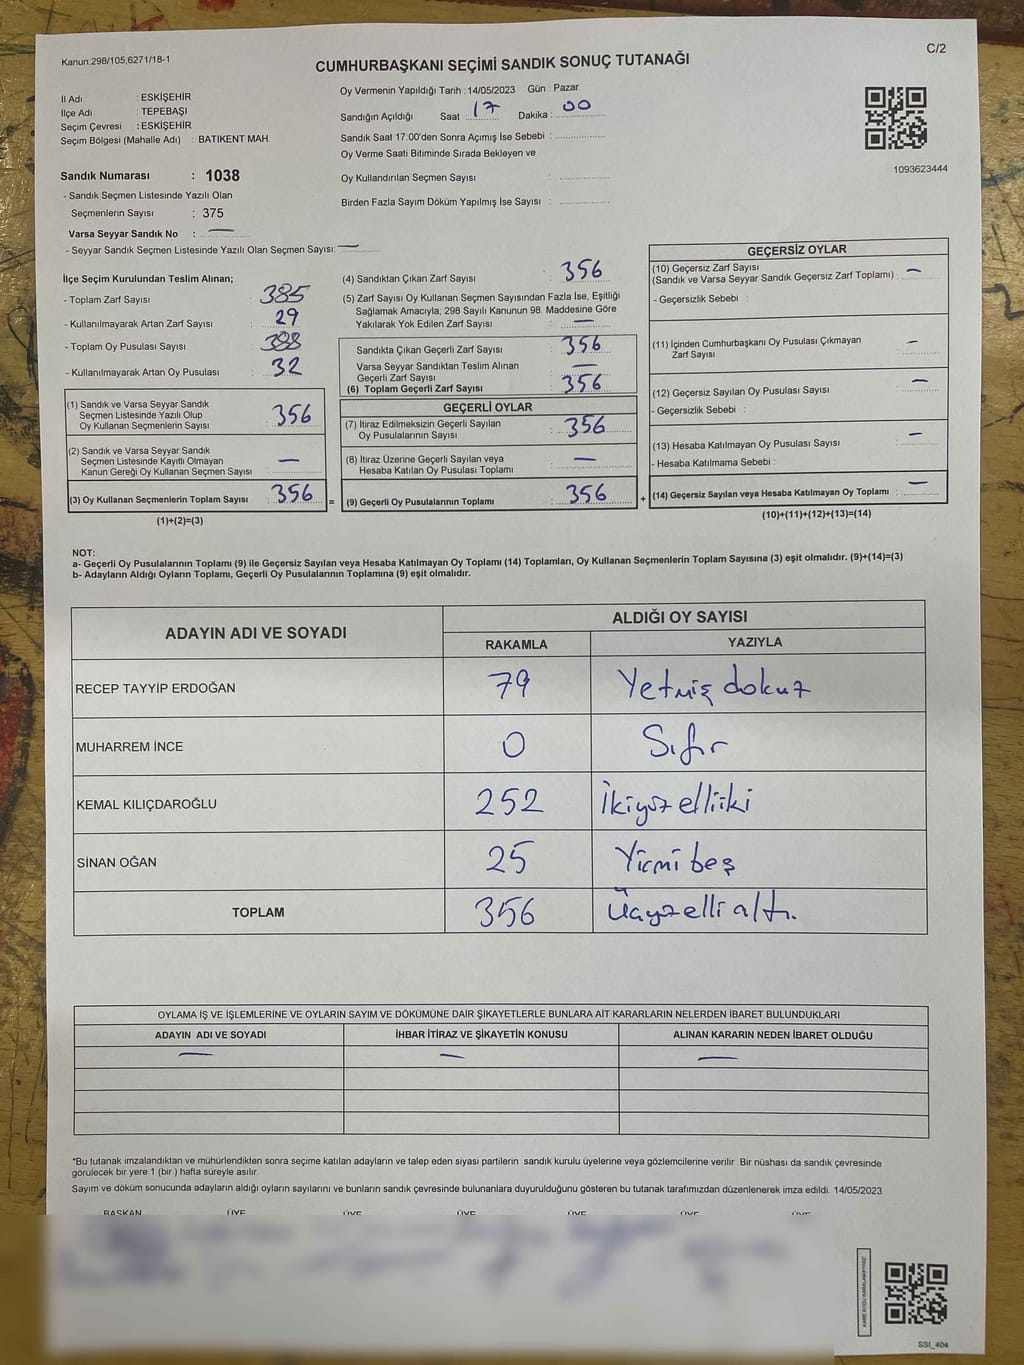 Kanun,298/105;6271/18-1
C/2
CUMHURBAŞKANI SEÇİMİ SANDIK SONUÇ TUTANAĞI
İl Adı : ESKİŞEHİR
İlçe Adı : TEPEBAŞI
Seçim Çevresi : ESKİŞEHİR
Seçim Bölgesi (Mahalle Adı) : BATIKENT MAH.
Sandık Numarası : 1038
- Sandık Seçmen Listesinde Yazılı Olan
Seçmenlerin Sayısı : 375
Varsa Seyyar Sandık No : —
- Seyyar Sandık Seçmen Listesinde Yazılı Olan Seçmen Sayısı: —
Oy Vermenin Yapıldığı Tarih :14/05/2023 Gün : Pazar
Sandığın Açıldığı Saat : 17 Dakika : 00
Sandık Saat 17:00'den Sonra Açımış İse Sebebi :
Oy Verme Saati Bitiminde Sırada Bekleyen ve
Oy Kullandırılan Seçmen Sayısı :
Birden Fazla Sayım Döküm Yapılmış İse Sayısı :
1093623444
İlçe Seçim Kurulundan Teslim Alınan;
- Toplam Zarf Sayısı : 385
- Kullanılmayarak Artan Zarf Sayısı : 29
- Toplam Oy Pusulası Sayısı : 388
- Kullanılmayarak Artan Oy Pusulası : 32
(1) Sandık ve Varsa Seyyar Sandık
Seçmen Listesinde Yazılı Olup
Oy Kullanan Seçmenlerin Sayısı : 356
(2) Sandık ve Varsa Seyyar Sandık
Seçmen Listesinde Kayıtlı Olmayan
Kanun Gereği Oy Kullanan Seçmen Sayısı : —
(3) Oy Kullanan Seçmenlerin Toplam Sayısı : 356 =
(1)+(2)=(3)
(4) Sandıktan Çıkan Zarf Sayısı : 356
(5) Zarf Sayısı Oy Kullanan Seçmen Sayısından Fazla İse, Eşitliği
Sağlamak Amacıyla; 298 Sayılı Kanunun 98. Maddesine Göre
Yakılarak Yok Edilen Zarf Sayısı : —
Sandıkta Çıkan Geçerli Zarf Sayısı : 356
Varsa Seyyar Sandıktan Teslim Alınan
Geçerli Zarf Sayısı : —
(6) Toplam Geçerli Zarf Sayısı : 356
GEÇERLİ OYLAR
(7) İtiraz Edilmeksizin Geçerli Sayılan
Oy Pusulalarının Sayısı : 356
(8) İtiraz Üzerine Geçerli Sayılan veya
Hesaba Katılan Oy Pusulası Toplamı : —
(9) Geçerli Oy Pusulalarının Toplamı : 356 +
GEÇERSİZ OYLAR
(10) Geçersiz Zarf Sayısı
(Sandık ve Varsa Seyyar Sandık Geçersiz Zarf Toplamı) : —
- Geçersizlik Sebebi :
(11) İçinden Cumhurbaşkanı Oy Pusulası Çıkmayan
Zarf Sayısı : —
(12) Geçersiz Sayılan Oy Pusulası Sayısı : —
- Geçersizlik Sebebi :
(13) Hesaba Katılmayan Oy Pusulası Sayısı : —
- Hesaba Katılmama Sebebi :
(14) Geçersiz Sayılan veya Hesaba Katılmayan Oy Toplamı : —
(10)+(11)+(12)+(13)=(14)
NOT:
a- Geçerli Oy Pusulalarının Toplamı (9) ile Geçersiz Sayılan veya Hesaba Katılmayan Oy Toplamı (14) Toplamları, Oy Kullanan Seçmenlerin Toplam Sayısına (3) eşit olmalıdır. (9)+(14)=(3)
b- Adayların Aldığı Oyların Toplamı, Geçerli Oy Pusulalarının Toplamına (9) eşit olmalıdır.
ADAYIN ADI VE SOYADI ALDIĞI OY SAYISI
RAKAMLA YAZIYLA
RECEP TAYYİP ERDOĞAN 79 Yetmiş dokuz
MUHARREM İNCE 0 Sıfır
KEMAL KILIÇDAROĞLU 252 İkiyüzelliiki
SİNAN OĞAN 25 Yirmi beş
TOPLAM 356 Üçyüzelli altı.
OYLAMA İŞ VE İŞLEMLERİNE VE OYLARIN SAYIM VE DÖKÜMÜNE DAİR ŞİKAYETLERLE BUNLARA AİT KARARLARIN NELERDEN İBARET BULUNDUKLARI
ADAYIN ADI VE SOYADI İHBAR İTİRAZ VE ŞİKAYETİN KONUSU ALINAN KARARIN NEDEN İBARET OLDUĞU
— — —
*Bu tutanak imzalandıktan ve mühürlendikten sonra seçime katılan adayların ve talep eden siyasi partilerin sandık kurulu üyelerine veya gözlemcilerine verilir. Bir nüshası da sandık çevresinde
görülecek bir yere 1 (bir ) hafta süreyle asılır.
Sayım ve döküm sonucunda adayların aldığı oyların sayılarını ve bunların sandık çevresinde bulunanlara duyurulduğunu gösteren bu tutanak tarafımızdan düzenlenerek imza edildi. 14/05/2023
BAŞKAN ÜYE ÜYE ÜYE ÜYE ÜYE ÜYE
SSI_404